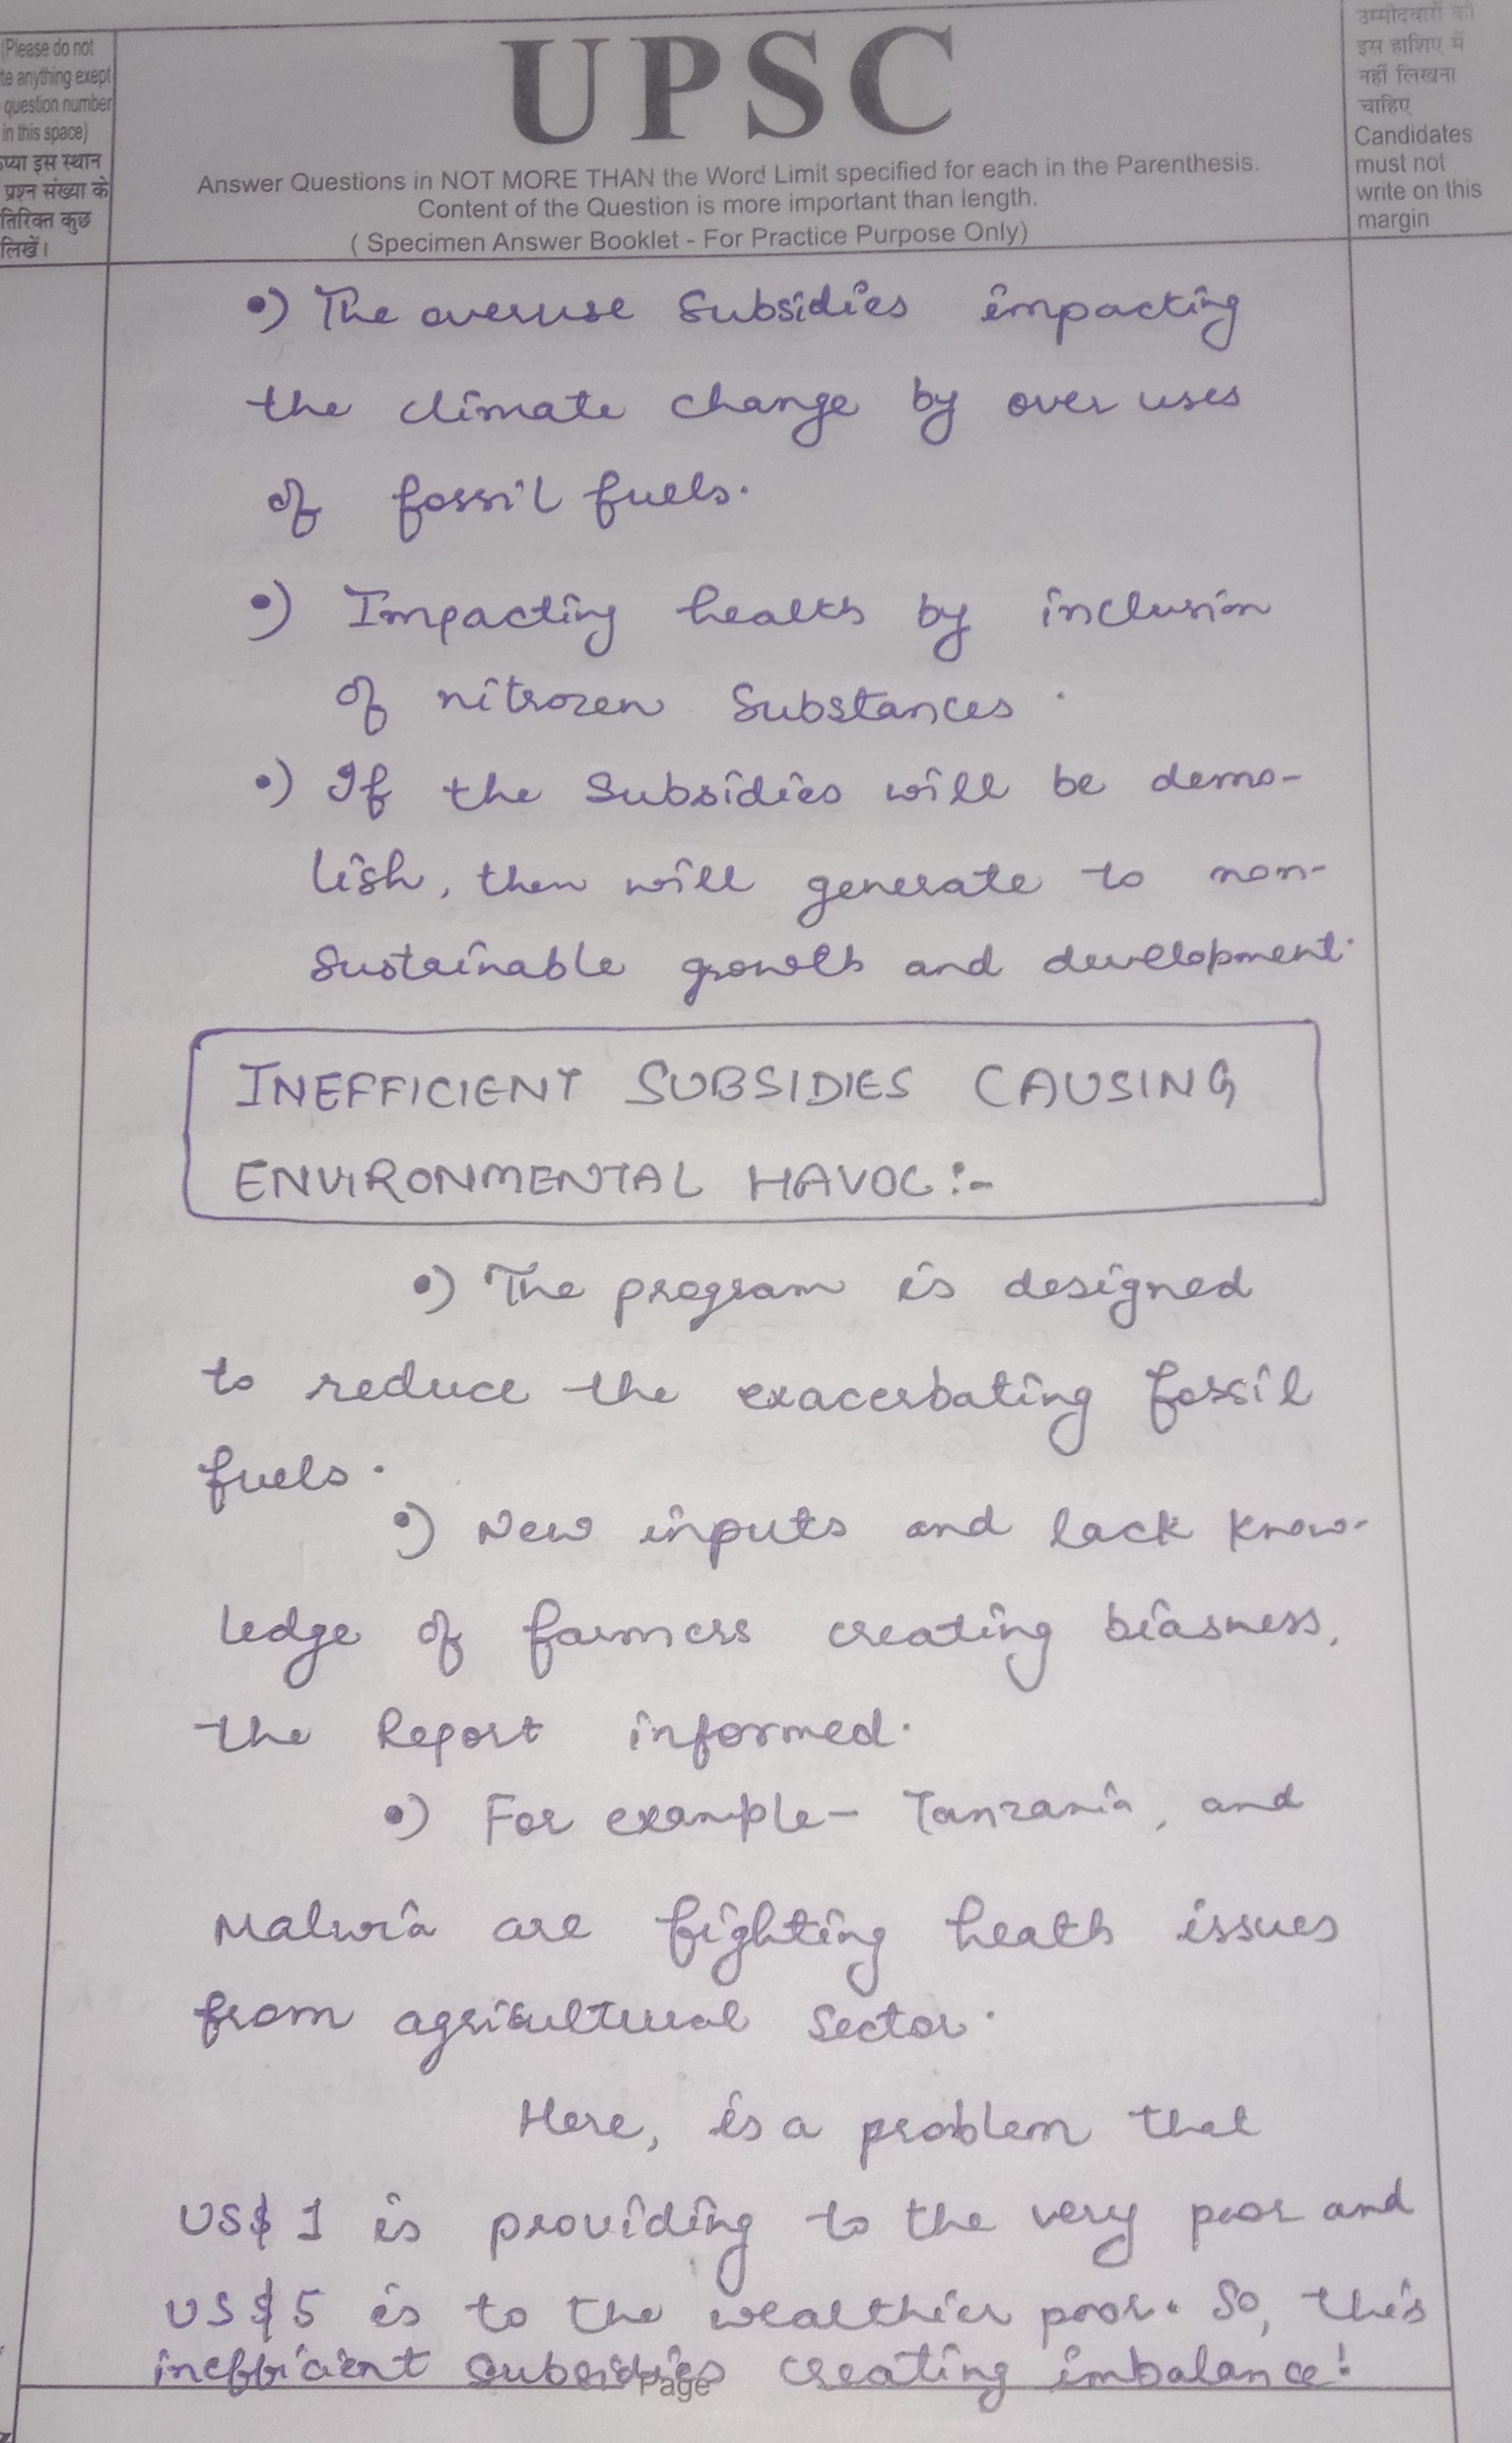 (Please do not
te anything exept
question number
in this space)
प्या इस स्थान
प्रश्न संख्या के
तिरिक्त कुछ
लिखें।
UPSC
Answer Questions in NOT MORE THAN the Word Limit specified for each in the Parenthesis.
Content of the Question is more important than length.
( Specimen Answer Booklet - For Practice Purpose Only)
उम्मीदवारों को
इस हाशिए में
नहीं लिखना
चाहिए
Candidates
must not
write on this
margin
•) The overuse Subsidies impacting
the climate change by over uses
of fossil fuels.
•) Impacting health by inclusion
of nitrozen Substances.
•) If the Subsidies will be demo-
lish, then will generate to non-
Sustainable growth and development.
INEFFICIENT SUBSIDIES CAUSING
ENVIRONMENTAL HAVOC:-
•) The program is designed
to reduce the exacerbating fossil
fuels.
•) New inputs and lack know-
ledge of farmers creating biasness,
the Report informed.
•) For example- Tanzania, and
Malwia are fighting heath issues
from agricultural Sector.
Here, is a problem that
US$ 1 is providing to the very poor and
US$5 is to the wealthier poor. So, this
inefficient subsidies creating imbalance!
Page